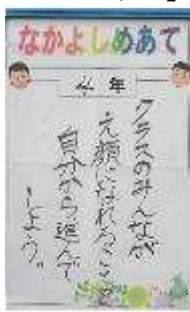 なかよしめあて
4年
クラスのみんなが
え顔になれることを
自分から進んで
しよう。